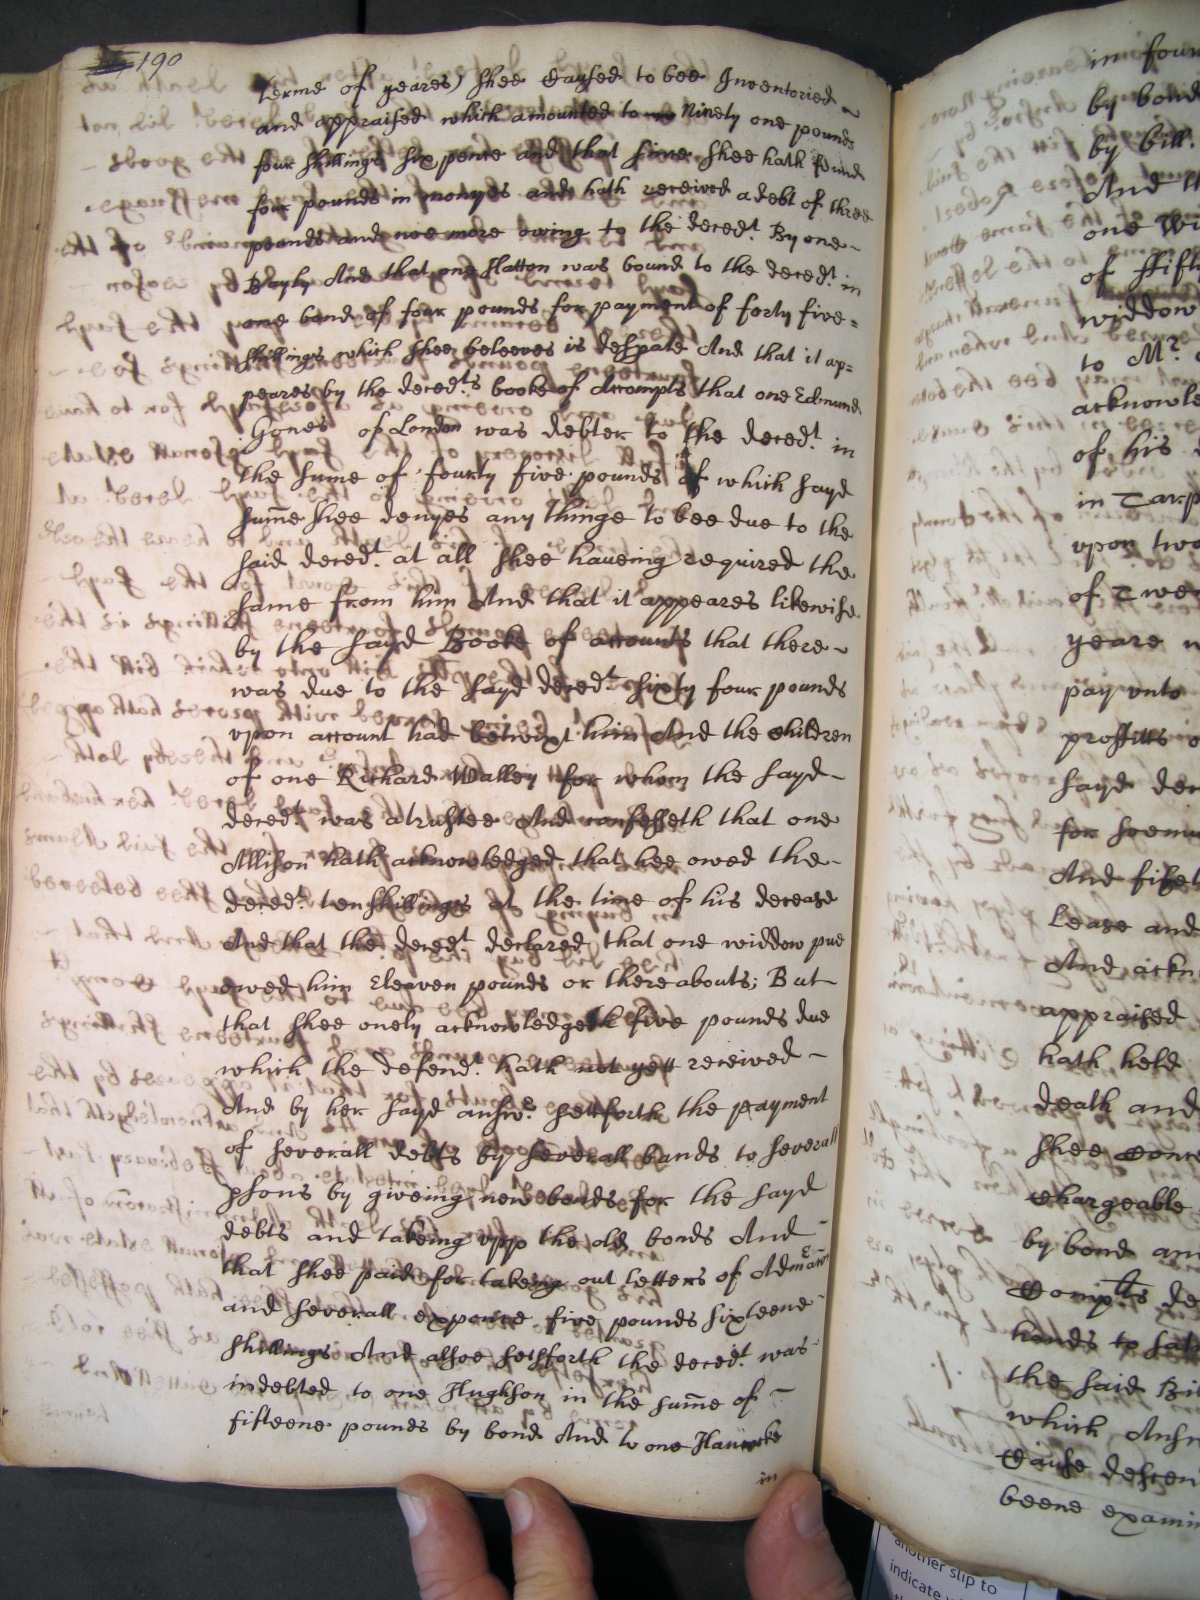 190
terme of yeares) shee caused to bee Inventoried
and appraised which amounted to Ninety one pounds
four shillings six pence and that since shee hath found
four pounds in monyes and hath received a debt of three
pounds and noe more owing to the deced.t By one
Bayly And that one Hatton was bound to the deced.t in
one bond of four pounds for payment of forty five =
shillings which shee beleeves is desparate And that it ap=
peares by the deced.ts booke of Accompts that one Edmund
Gones of London was debter to the deced.t in
the sume of fourty five pounds of which sayd
sum̄e hee denyes any thinge to bee due to the
said deced.t at all shee haveing required the
same from him And that it appeares likewise
by the sayd Booke of accounts that there ~
was due to the sayd deced.t sixty four pounds
upon account had betwixt him And the children
of one Richard Walley for whom the sayd ~
deced.t was a trustee And confesseth that one
Allison hath acknowledged that hee owed the ~
deced.t ten shillings at the time of his decease
And that the deced.t declared that one widdow pue
owed him Eleaven pounds or thereabouts; But ~
that shee onely acknowledgeth five pounds due
which the defend.t hath not yett received ~
And by her sayd answ.e setteforth the payment
of severall debts by severall bands to severall
psons by giveing new bonds for the sayd
debts and takeing upp the old bonds And ~
that shee paid for takeing out letters of Admāc̄on
and severall expence five pounds sixteene
shillings And alsoe setsforth the deced.t was
indebted to one Hughson in the sum̄e of ~
fifteene pounds by bond And to one
in
in four
by bond
by bill.
And th
one Wi
of ffift
widdow
to M.r
acknowle
of his
in Carp
upon two
of Twe
yeare
pay unto
proffitts o
sayd dec
for
And
Lease and
And ackn
appraised
hath held
death and
shee
Chargeable
by bond an
Compl.ts de
hands to sat
the said Bi
which Answ
Cause descen
beene examin
another slip to
indicate